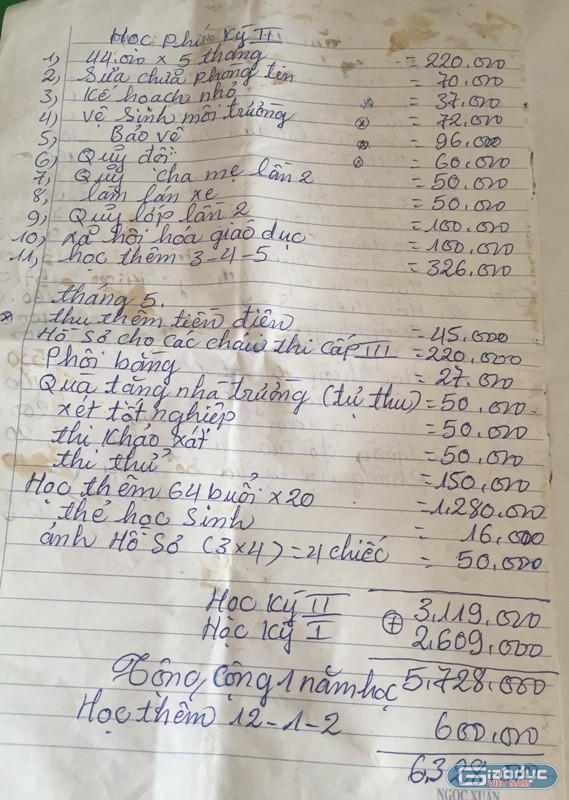 Học phí Kỳ II
1, 44.000 x 5 tháng = 220.000
2, Sửa chữa phòng tin = 70.000
3, Kế hoạch nhỏ = 37.000
4, vệ sinh môi trường = 72.000
5, Bảo vệ = 96.000
6, Quỹ đội = 60.000
7, Quỹ cha mẹ lần 2 = 50.000
8, làm fán xe = 50.000
9, Quỹ lớp lần 2 = 100.000
10, xã hội hóa giáo dục = 100.000
11, học thêm 3-4-5 = 326.000
tháng 5.
thu thêm tiền điện = 45.000
Hồ Sơ cho các cháu thi cấp III = 220.000
Phôi bằng = 27.000
Quà tặng nhà trường (tự thu) = 50.000
xét tốt nghiệp = 50.000
thi Khảo xát = 50.000
thi thử = 150.000
Học thêm 64 buổi x 20 = 1.280.000
thẻ học Sinh = 16.000
ảnh Hồ Sơ (3x4) = 4 chiếc = 50.000
Học Kỳ II 3.119.000
Học Kỳ I + 2.609.000
Tổng cộng 1 năm học 5.728.000
Học thêm 12-1-2 600.000
6.328
Giáo dục
VIỆT NAM
NGỌC XUÂN